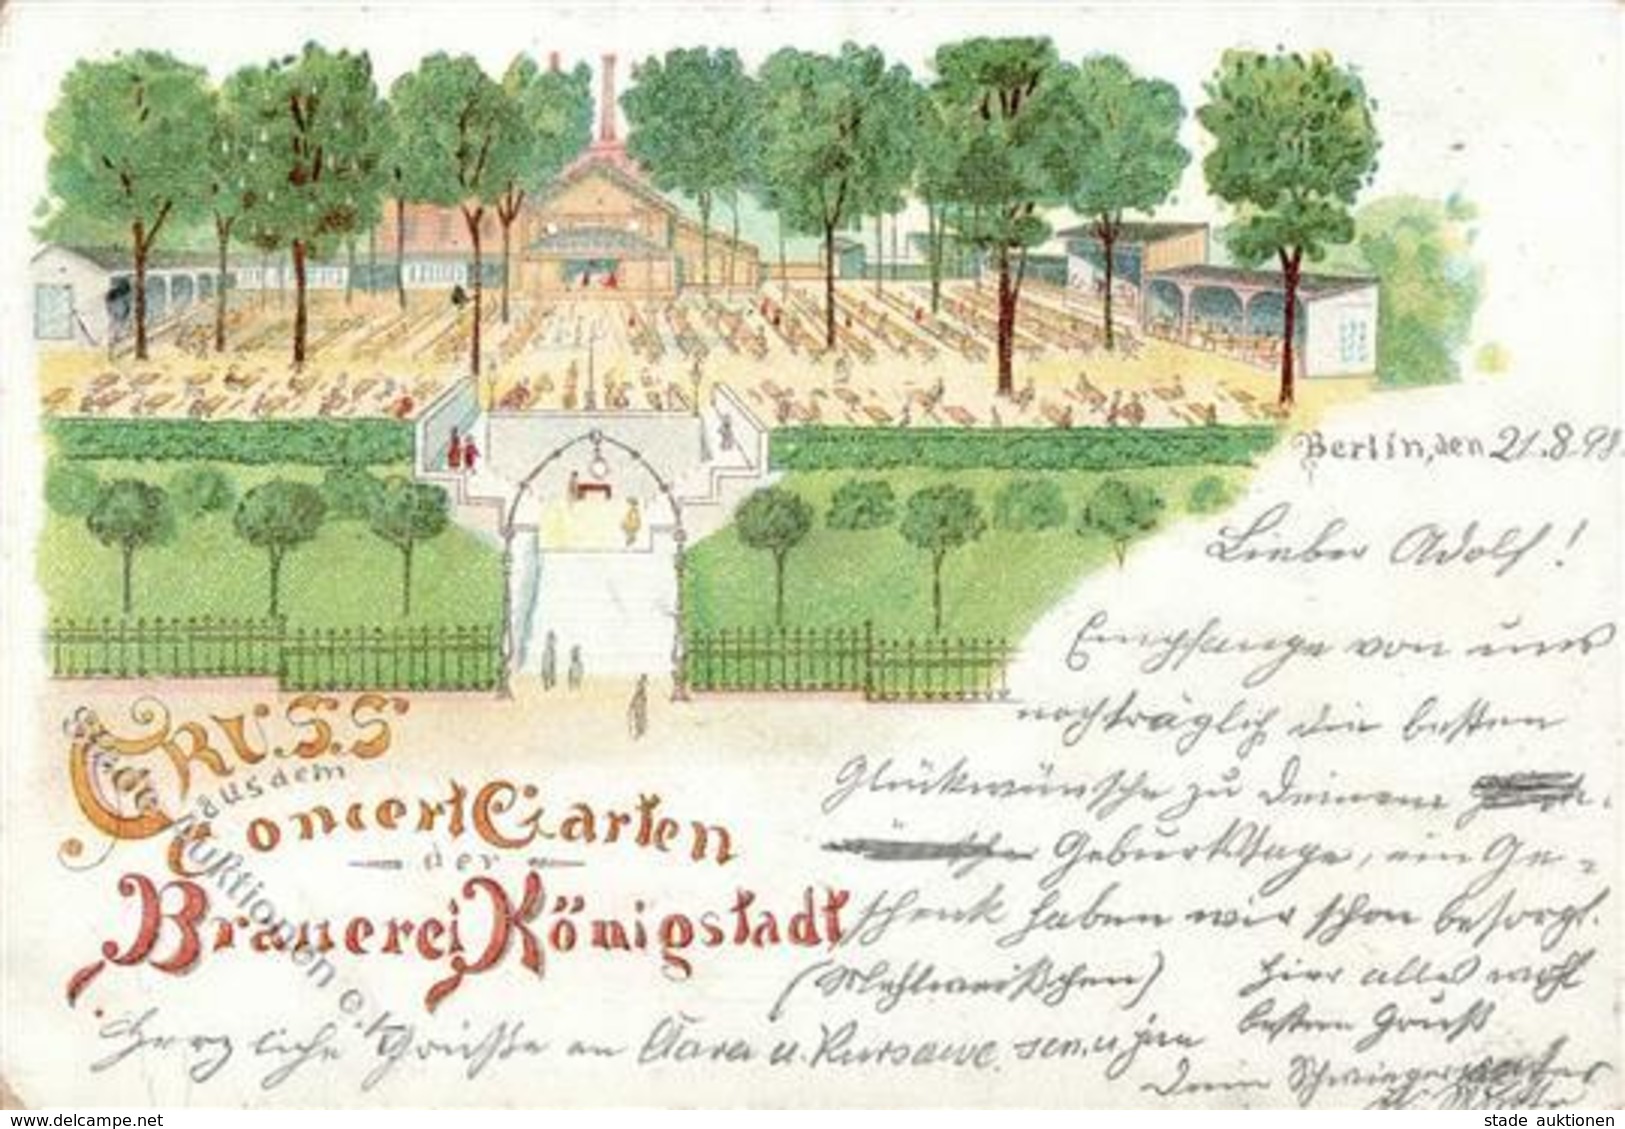 Berlin, den 21.8.98.
Lieber Adolf!
Empfange von uns
nachträglich die besten
Glückwünsche zu Deinem
Geburtstage, ein Ge-
schenk haben wir schon besorgt.
(Mehlweißchen) Hier alles wohl
besten Gruß
Dein Schwiegervater
Gruss
aus dem
Concert Garten
der
Brauerei Königstadt
Herzliche Grüße an Clara u. Kursawe sen. u. jun
stade auktionen e.K.
www.delcampe.net
stade auktionen